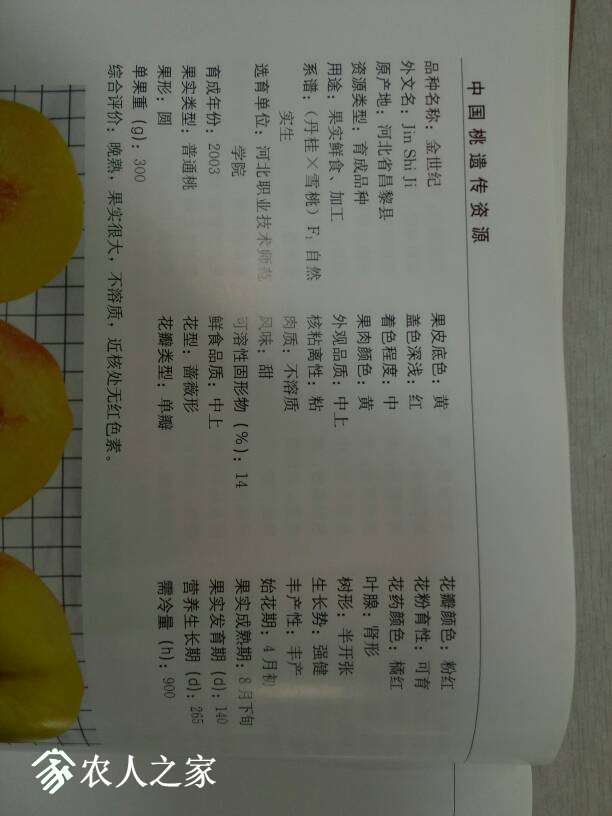 中国桃遗传资源
品种名称：金世纪
外文名：Jin Shi Ji
原产地：河北省昌黎县
资源类型：育成品种
用途：果实鲜食、加工
系谱：（丹桂×雪桃）F₁自然
实生
选育单位：河北职业技术师范
学院
育成年份：2003
果实类型：普通桃
果形：圆
单果重（g）：300
果皮底色：黄
盖色深浅：红
着色程度：中
果肉颜色：黄
外观品质：中上
核粘离性：粘
肉质：不溶质
风味：甜
可溶性固形物（%）：14
鲜食品质：中上
花型：蔷薇形
花瓣类型：单瓣
花瓣颜色：粉红
花粉育性：可育
花药颜色：橘红
叶腺：肾形
树形：半开张
生长势：强健
丰产性：丰产
始花期：4月初
果实成熟期：8月下旬
果实发育期（d）：140
营养生长期（d）：265
需冷量（h）：900
综合评价：晚熟，果实很大，不溶质，近核处无红色素。
农人之家